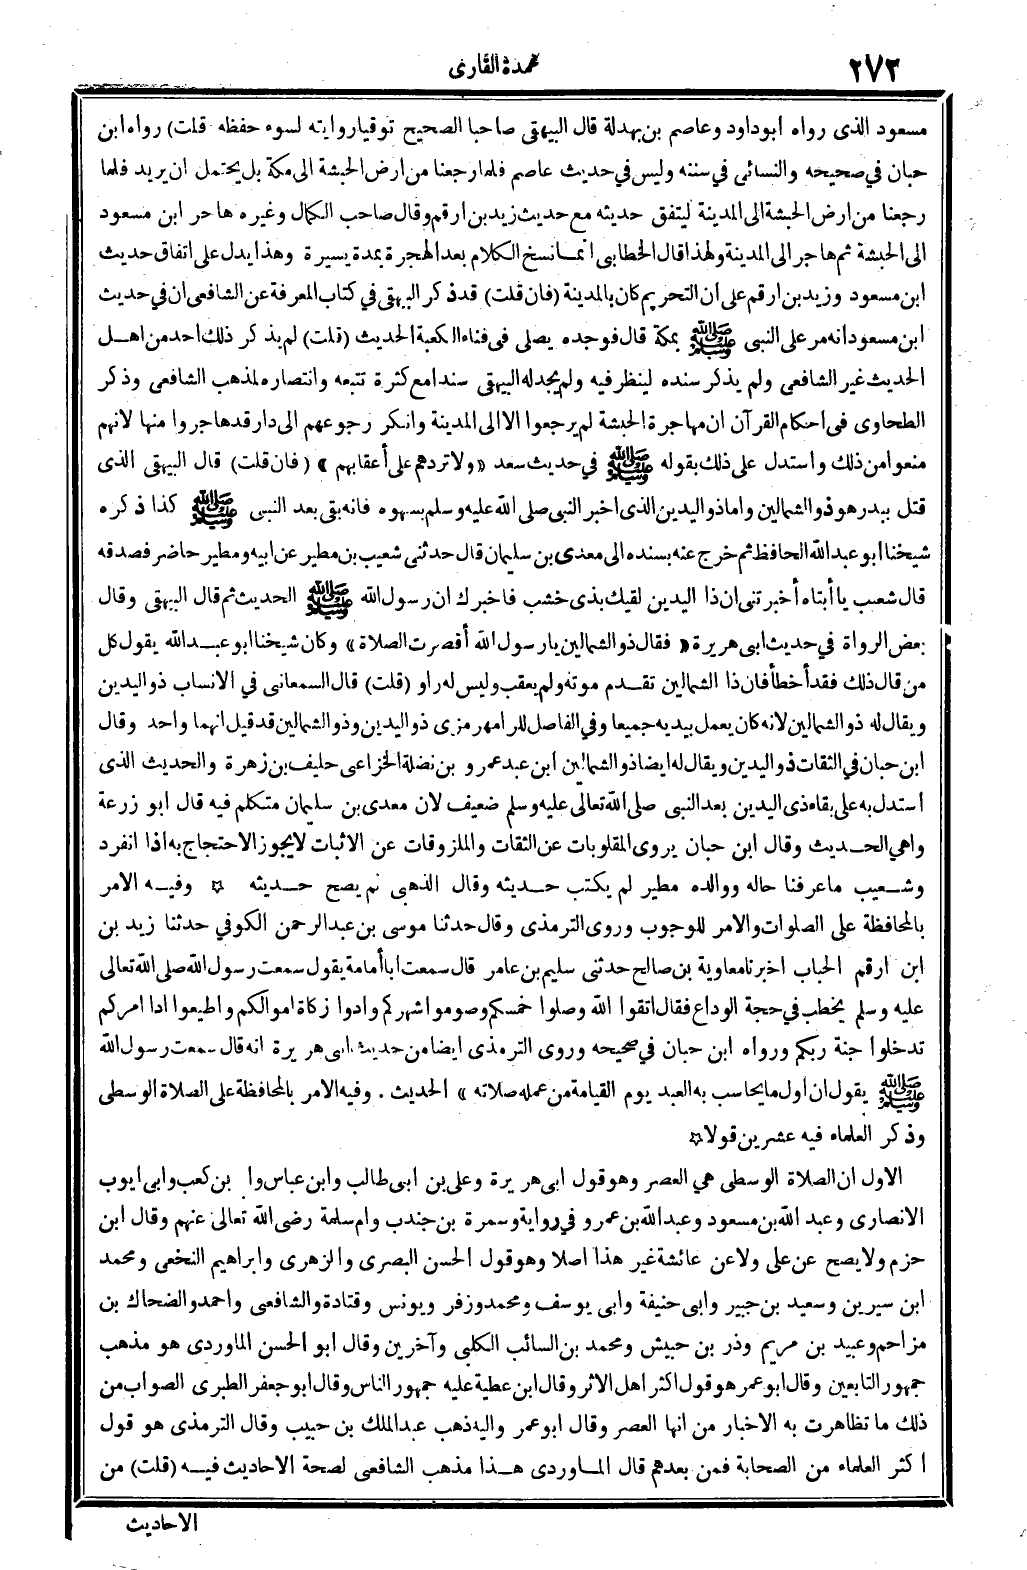 ٢٧٢
عمدة القارى
مسعود الذى رواه ابو داود وعاصم بن بهدلة قال البيهقى صاحبا الصحيح توقيا روايته لسوء حفظه قلت) رواه ابن
حبان في صحيحه والنسائى في سننه وليس في حديث عاصم فلما رجعنا من ارض الحبشة الى مكة بل يحتمل ان يريد فلما
رجعنا من ارض الحبشة الى المدينة ليتفق حديثه مع حديث زيد بن ارقم وقال صاحب الكمال وغيره هاجر ابن مسعود
الى الحبشة ثم هاجر الى المدينة ولهذا قال الخطابى انما نسخ الكلام بعد الهجرة بمدة يسيرة وهذا يدل على اتفاق حديث
ابن مسعود وزيد بن ارقم على ان التحريم كان بالمدينة (فان قلت) قد ذكر البيهقى في كتاب المعرفة عن الشافعى ان في حديث
ابن مسعود انه مر على النبى ﷺ بمكة قال فوجده يصلى فى فناء الكعبة الحديث (قلت) لم يذكر ذلك احد من اهل
الحديث غير الشافعى ولم يذكر سنده لينظر فيه ولم يجد له البيهقى سندا مع كثرة تتبعه وانتصاره لمذهب الشافعى وذكر
الطحاوى فى احكام القرآن ان مهاجرة الحبشة لم يرجعوا الا الى المدينة وانكر رجوعهم الى دار قد هاجروا منها لانهم
منعوا من ذلك واستدل على ذلك بقوله ﷺ في حديث سعد «ولا تردهم على أعقابهم» (فان قلت) قال البيهقى الذى
قتل ببدر هو ذو الشمالين واما ذو اليدين الذى اخبر النبى صلى الله عليه وسلم بسهوه فانه بقى بعد النبى ﷺ كذا ذكره
شيخنا أبو عبد الله الحافظ ثم خرج عنه بسنده الى معدى بن سليمان قال حدثنى شعيب بن مطير عن ابيه ومطير حاضر فصدقه
قال شعب يا أبتاه أخبرتنى ان ذا اليدين لقيك بذى خشب فاخبرك ان رسول الله ﷺ الحديث ثم قال البيهقى وقال
بعض الرواة في حديث ابى هريرة «فقال ذو الشمالين يا رسول الله أقصرت الصلاة» وكان شيخنا ابو عبد الله يقول كل
من قال ذلك فقد أخطأ فان ذا الشمالين تقدم موته ولم يعقب وليس له راو (قلت) قال السمعانى في الانساب ذو اليدين
ويقال له ذو الشمالين لانه كان يعمل بيديه جميعا وفي الفاصل للرامهرمزى ذو اليدين وذو الشمالين قد قيل انهما واحد وقال
ابن حبان في الثقات ذو اليدين ويقال له ايضا ذو الشمالين ابن عبد عمرو بن نضلة الخزاعى حليف بن زهرة والحديث الذى
أستدل به على بقاء ذى اليدين بعد النبى صلى الله تعالى عليه وسلم ضعيف لان معدى بن سليمان متكلم فيه قال ابو زرعة
واهي الحديث وقال ابن حبان يروى المقلوبات عن الثقات والملزوقات عن الاثبات لا يجوز الاحتجاج به اذا انفرد
وشعيب ما عرفنا حاله ووالده مطير لم يكتب حديثه وقال الذهبى لم يصح حديثه ✡ وفيه الامر
بالمحافظة على الصلوات والامر للوجوب وروى الترمذى وقال حدثنا موسى بن عبد الرحمن الكوفي حدثنا زيد بن
ابن ارقم الحباب اخبرنا معاوية بن صالح حدثنى سليم بن عامر قال سمعت ابا أمامة يقول سمعت رسول الله صلى الله تعالى
عليه وسلم يخطب في حجة الوداع فقال اتقوا الله وصلوا خمسكم وصوموا شهركم وادوا زكاة اموالكم واطيعوا اذا امركم
تدخلوا جنة ربكم ورواه ابن حبان في صحيحه وروى الترمذى ايضا من حديث ابى هريرة انه قال سمعت رسول الله
ﷺ يقول ان أول ما يحاسب به العبد يوم القيامة من عمله صلاته» الحديث . وفيه الامر بالمحافظة على الصلاة الوسطى
وذكر العلماء فيه عشرين قولا ✡
الاول ان الصلاة الوسطى هي العصر وهو قول ابى هريرة وعلى بن ابى طالب وابن عباس وا بن كعب وابى ايوب
الانصارى وعبد الله بن مسعود وعبد الله بن عمرو في رواية وسمرة بن جندب وام سلمة رضى الله تعالى عنهم وقال ابن
حزم ولا يصح عن على ولا عن عائشة غير هذا اصلا وهو قول الحسن البصرى والزهرى وابراهيم النخعى ومحمد
ابن سيرين وسعيد بن جبير وابى حنيفة وابى يوسف ومحمد وزفر ويونس وقتادة والشافعى واحمد والضحاك بن
مزاحم وعبيد بن مريم وذر بن حبيش ومحمد بن السائب الكلبى وآخرين وقال ابو الحسن الماوردى هو مذهب
جمهور التابعين وقال ابو عمر هو قول اكثر اهل الاثر وقال ابن عطية عليه جمهور الناس وقال ابو جعفر الطبرى الصواب من
ذلك ما تظاهرت به الاخبار من انها العصر وقال ابو عمر واليه ذهب عبد الملك بن حبيب وقال الترمذى هو قول
أكثر العلماء من الصحابة فمن بعدهم قال الماوردى هذا مذهب الشافعى لصحة الاحاديث فيه (قلت) من
الاحاديث